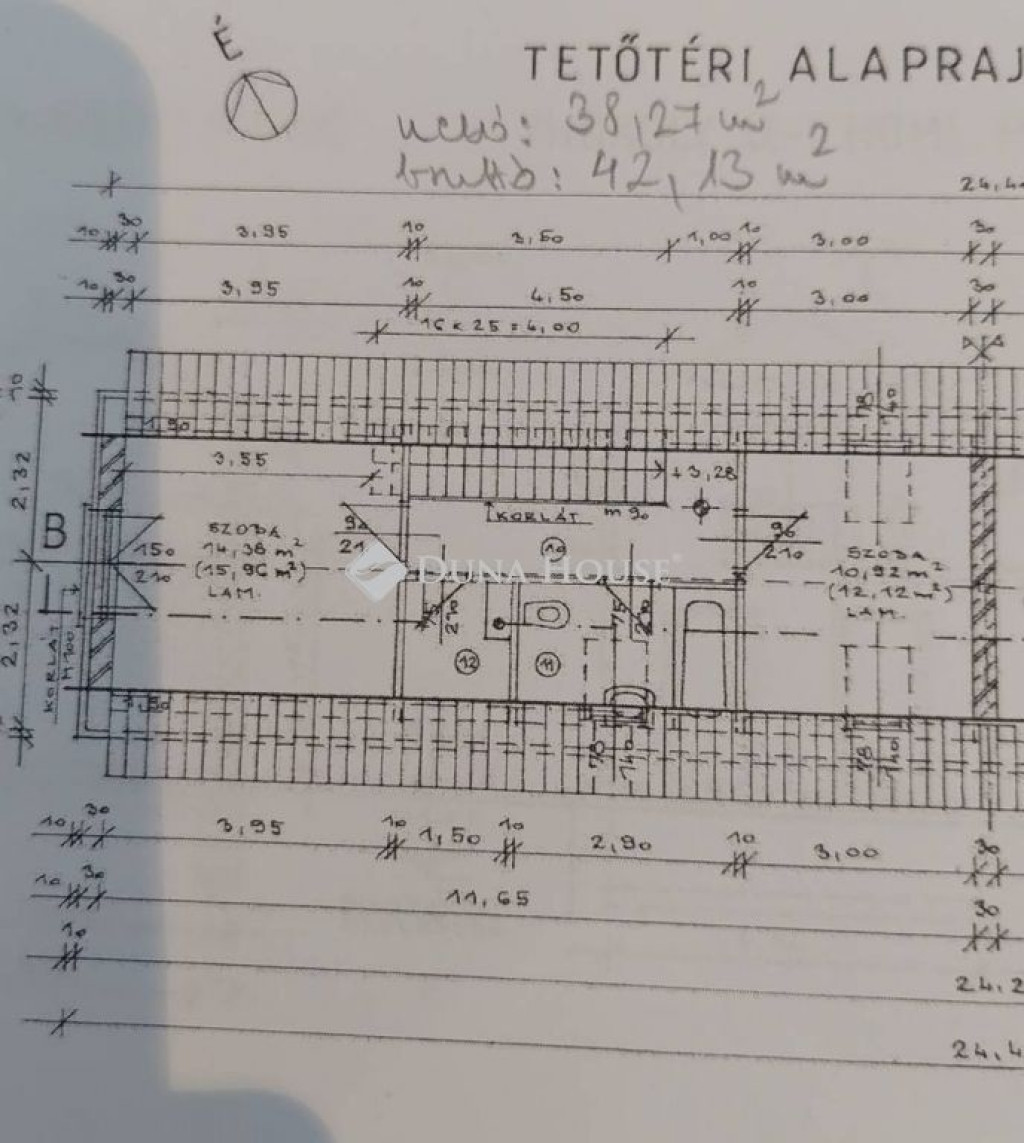 É
TETŐTÉRI ALAPRAJ
nettó: 38,27 m²
bruttó: 42,13 m²
24,4
10 30 3,95 10 3,50 1,00 10 3,00 30
10 30 3,95 10 4,50 10 3,00 30
16 x 25 = 4,00
10
2,32
2,32
1,90
3,55
+3,28
78
140
KORLÁT m 90
B
150
210
SZOBA
14,36 m²
(15,96 m²)
LAM.
90
21
10
90
210
SZOBA
10,92 m²
(12,12 m²)
LAM.
DUNA HOUSE®
75
210
75
210
12
11
KORLÁT
M 100
1,90
78
140
78
140
10 30 3,95 10 1,50 10 2,90 10 3,00 30
10 30 11,65 30
10 24,2
24,4